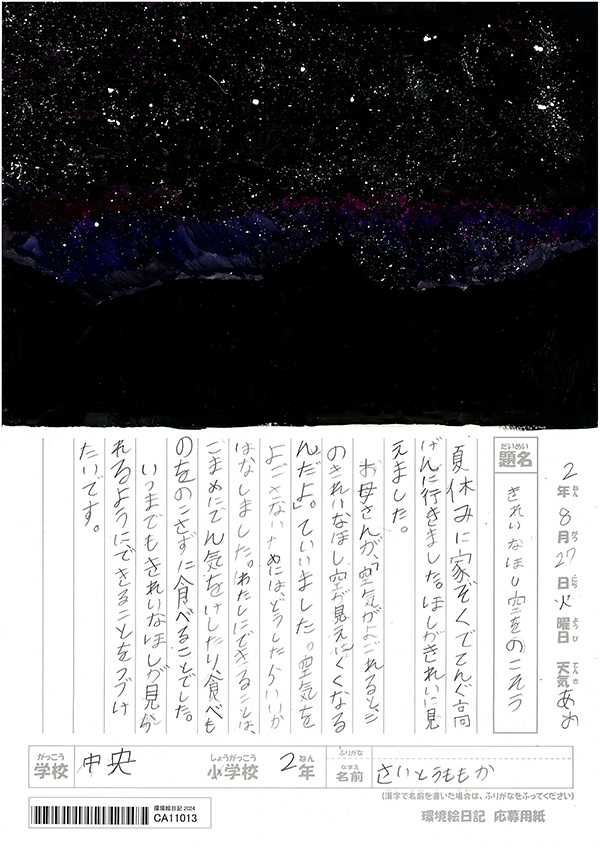 2年ねん8月がつ27日にち火曜日ようび 天気てんきあめ
題名だいめい きれいなほし空をのこそう
夏休みに家ぞくでてんぐ高
げんに行きました。ほしがきれいに見
えました。
お母さんが、「空気がよごれると、こ
のきれいなほし空が見えにくくなる
んだよ」ていいました。空気を
よごさないためには、どうしたらいいか
はなしました。わたしにできることは、
こまめにでん気をけしたり、食べも
のをのこさずに食べることでした。
いつまでもきれいなほしが見ら
れるようにできることをつづけ
たいです。
がっこう
学校 中央 しょうがっこう 小学校 2年ねん
ふりがな
なまえ
名前 さいとうももか
(漢字で名前を書いた場合は、ふりがなをふってください)
環境絵日記 2024
CA11013
環境絵日記 応募用紙